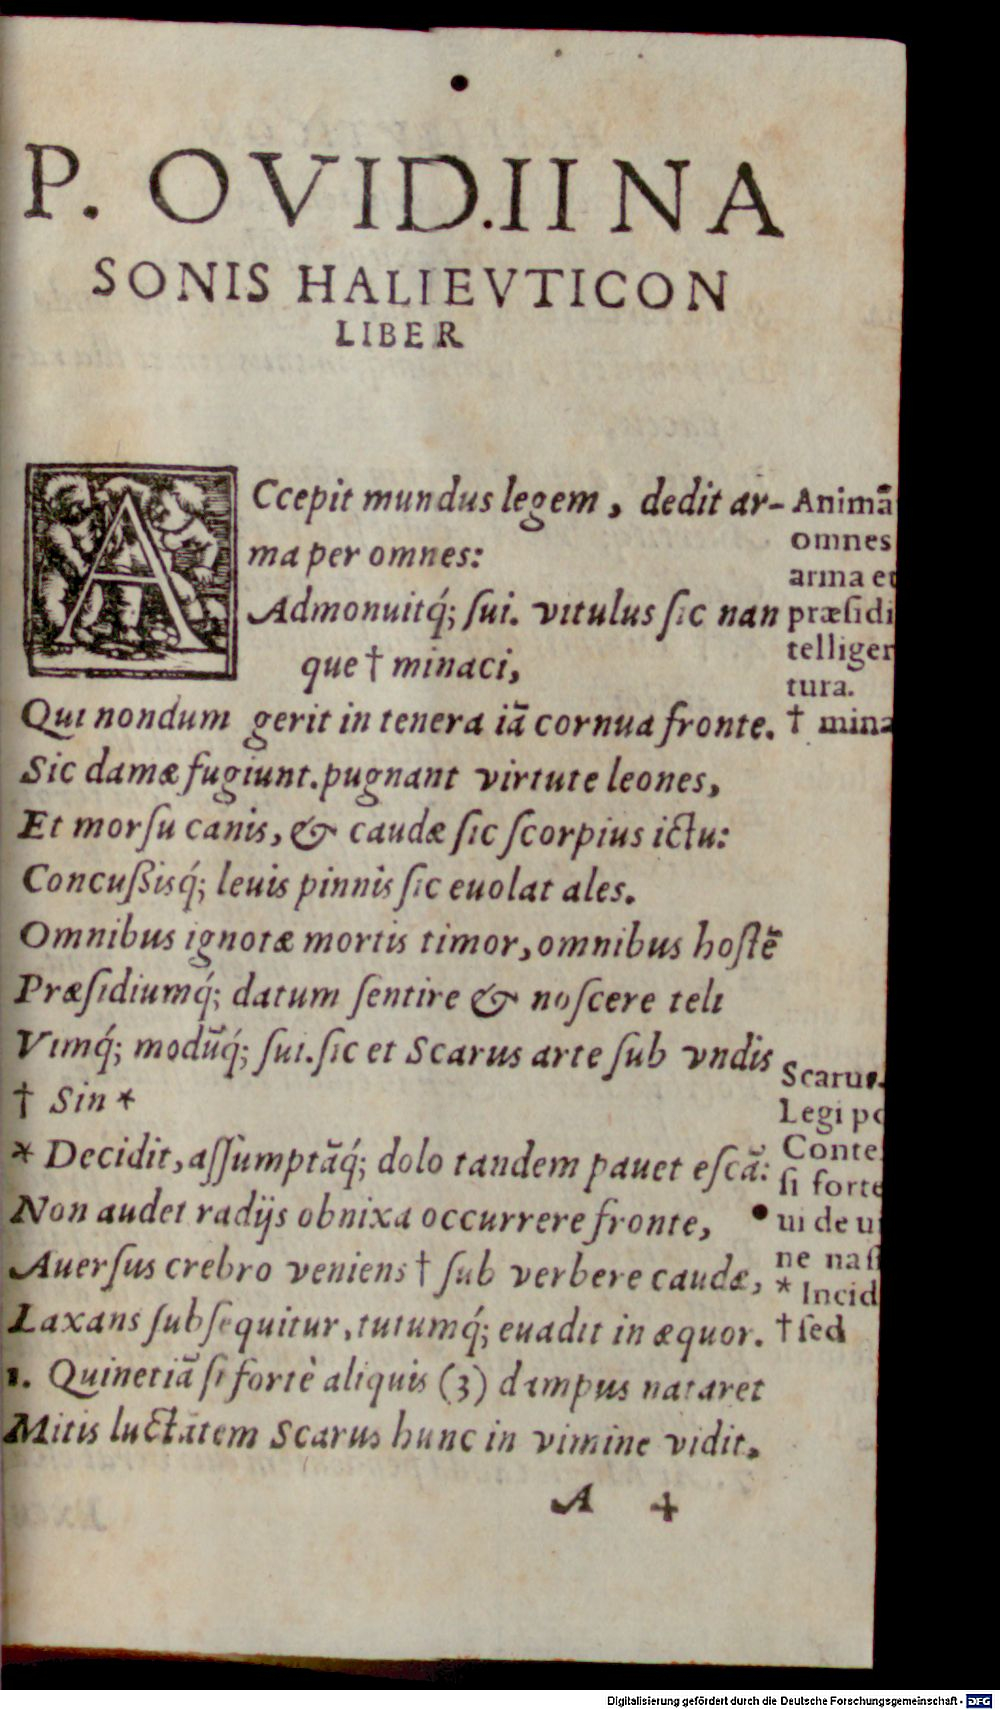 P. OVID.II NA
SONIS HALIEVTICON
LIBER
ACcepit mundus legem, dedit ar-
ma per omnes:
Admonuitq́; ſui. vitulus ſic nan
que † minaci,
Qui nondum gerit in tenera iā cornua fronte.
Sic damæ fugiunt. pugnant virtute leones,
Et morſu canis, & caudæ ſic ſcorpius ictu:
Concuſsisq́; leuis pinnis ſic euolat ales.
Omnibus ignotæ mortis timor, omnibus hoſtē
Præſidiumq́; datum ſentire & noſcere teli
Vimq́; modūq́; ſui. ſic et Scarus arte ſub vndis
† Sin *
* Decidit, aſſumptāq́; dolo tandem pauet eſcā:
Non audet radijs obnixa occurrere fronte,
Auerſus crebro veniens † ſub verbere caudæ,
Laxans ſubſequitur, tutumq́; euadit in æquor.
1. Quinetiā ſi fortè aliquis (3) dampus nataret
Mitis luctātem Scarus hunc in vimine vidit.
A 4
Animā
omnes
arma et
præſidi
telligen
tura.
† mina
Scarus.
Legi po
Conte
ſi forte
ui de ui
ne naſ
* Incid
† ſed
Digitalisierung gefördert durch die Deutsche Forschungsgemeinschaft - DFG